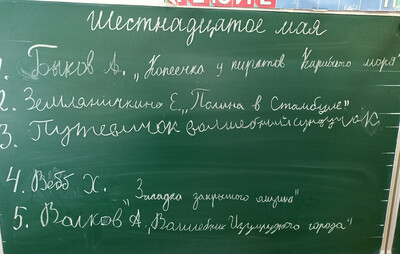 Шестнадцатое мая
1. Быков А. „Копеечка у пиратов Карибского моря"
2. Земляничкина Е. „Полина в Стамбуле"
3. Путевичок волшебный сундучок
4. Вебб Х.
„Загадка закрытого ящика"
5. Волков А. „Волшебник Изумрудного города"